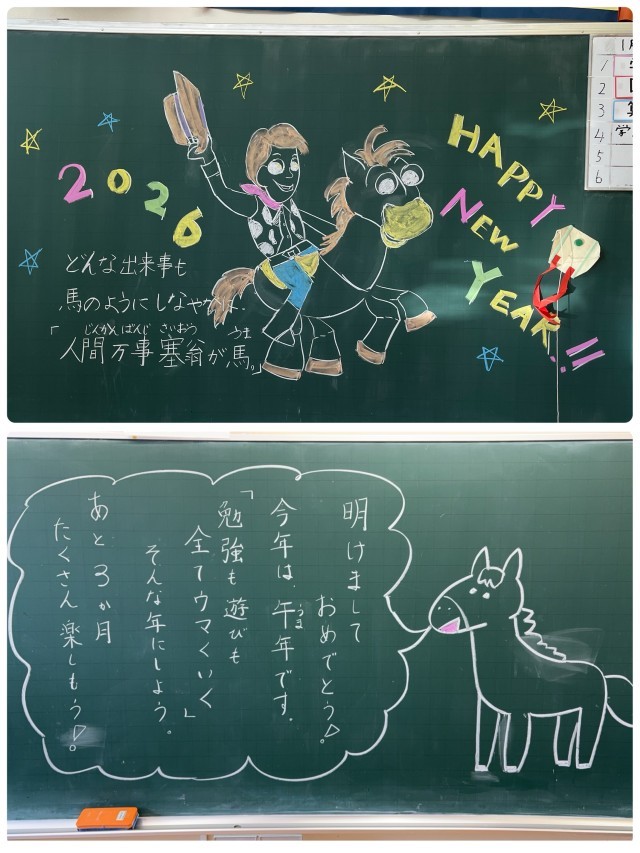 2026
HAPPY
NEW
YEAR!!
1
2
3
4 学
5
6
どんな出来事も
馬のようにしなやかに
「人間万事塞翁が馬。」
じんかんばんじ さいおう うま
明けまして
おめでとう!
今年は、午年です。
うま
「勉強も遊びも
全てウマくいく」
そんな年にしよう。
あと3か月
たくさん楽しもう!